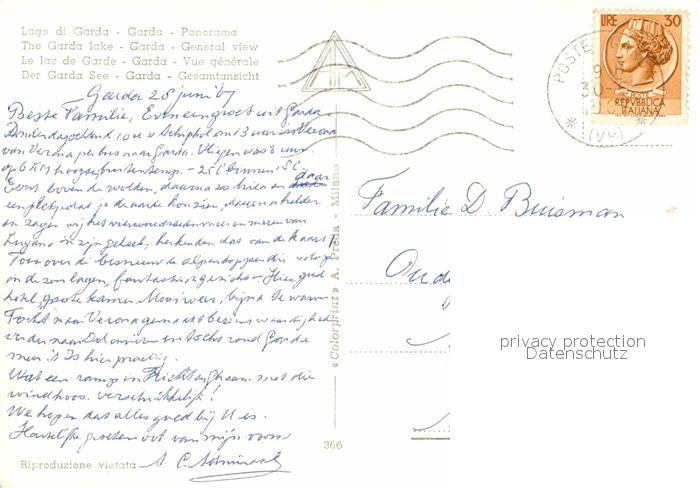 Lago di Garda - Garda - Panorama
The Garda lake - Garda - General view
Le lac de Garde - Garda - Vue générale
Der Garda See - Garda - Gesamtansicht
Garda 28 juni '67
Beste Familie, Even een groet uit Garda
Donderdagochtend 10 u v Schiphol om 13 uur in Verona
van Verona per bus naar Garda. Vliegen was 3 uur
op 6 KM hoogte buitentemp. - 25 C binnen
Eerst boven de wolken, daarna zo hier en daar
een plekje dat je de aarde kon zien, daarna helder
en zagen wij het vierwoudstedenmeer en meren van
Lugano in zijn geheel, herkenden dat van de kaart
Toen over de besneeuwde alpentoppen die volop
in de zon lagen, fantastisch gezicht - Hier goed
hotel, grote kamer. Mooi weer, bijna te warm
Tocht naar Verona gemaakt bezienswaardigheden
verder naar Dolomieten en tochs rond Garda
meer is 't hier prachtig.
Wat een ramp in Tricht en gaan met die
windhoos. verschrikkelijk!
We hopen dat alles goed bij U is.
Hartelijke groeten ook van mijn vrouw
A. C. Admiraal
Riproduzione vietata
366
«Colorprint» A. Preda - Milano
POSTE
LIRE 30
POSTE
REPVBBLICA
ITALIANA
(VR)
Familie D. Buisman
Oude
privacy protection
Datenschutz